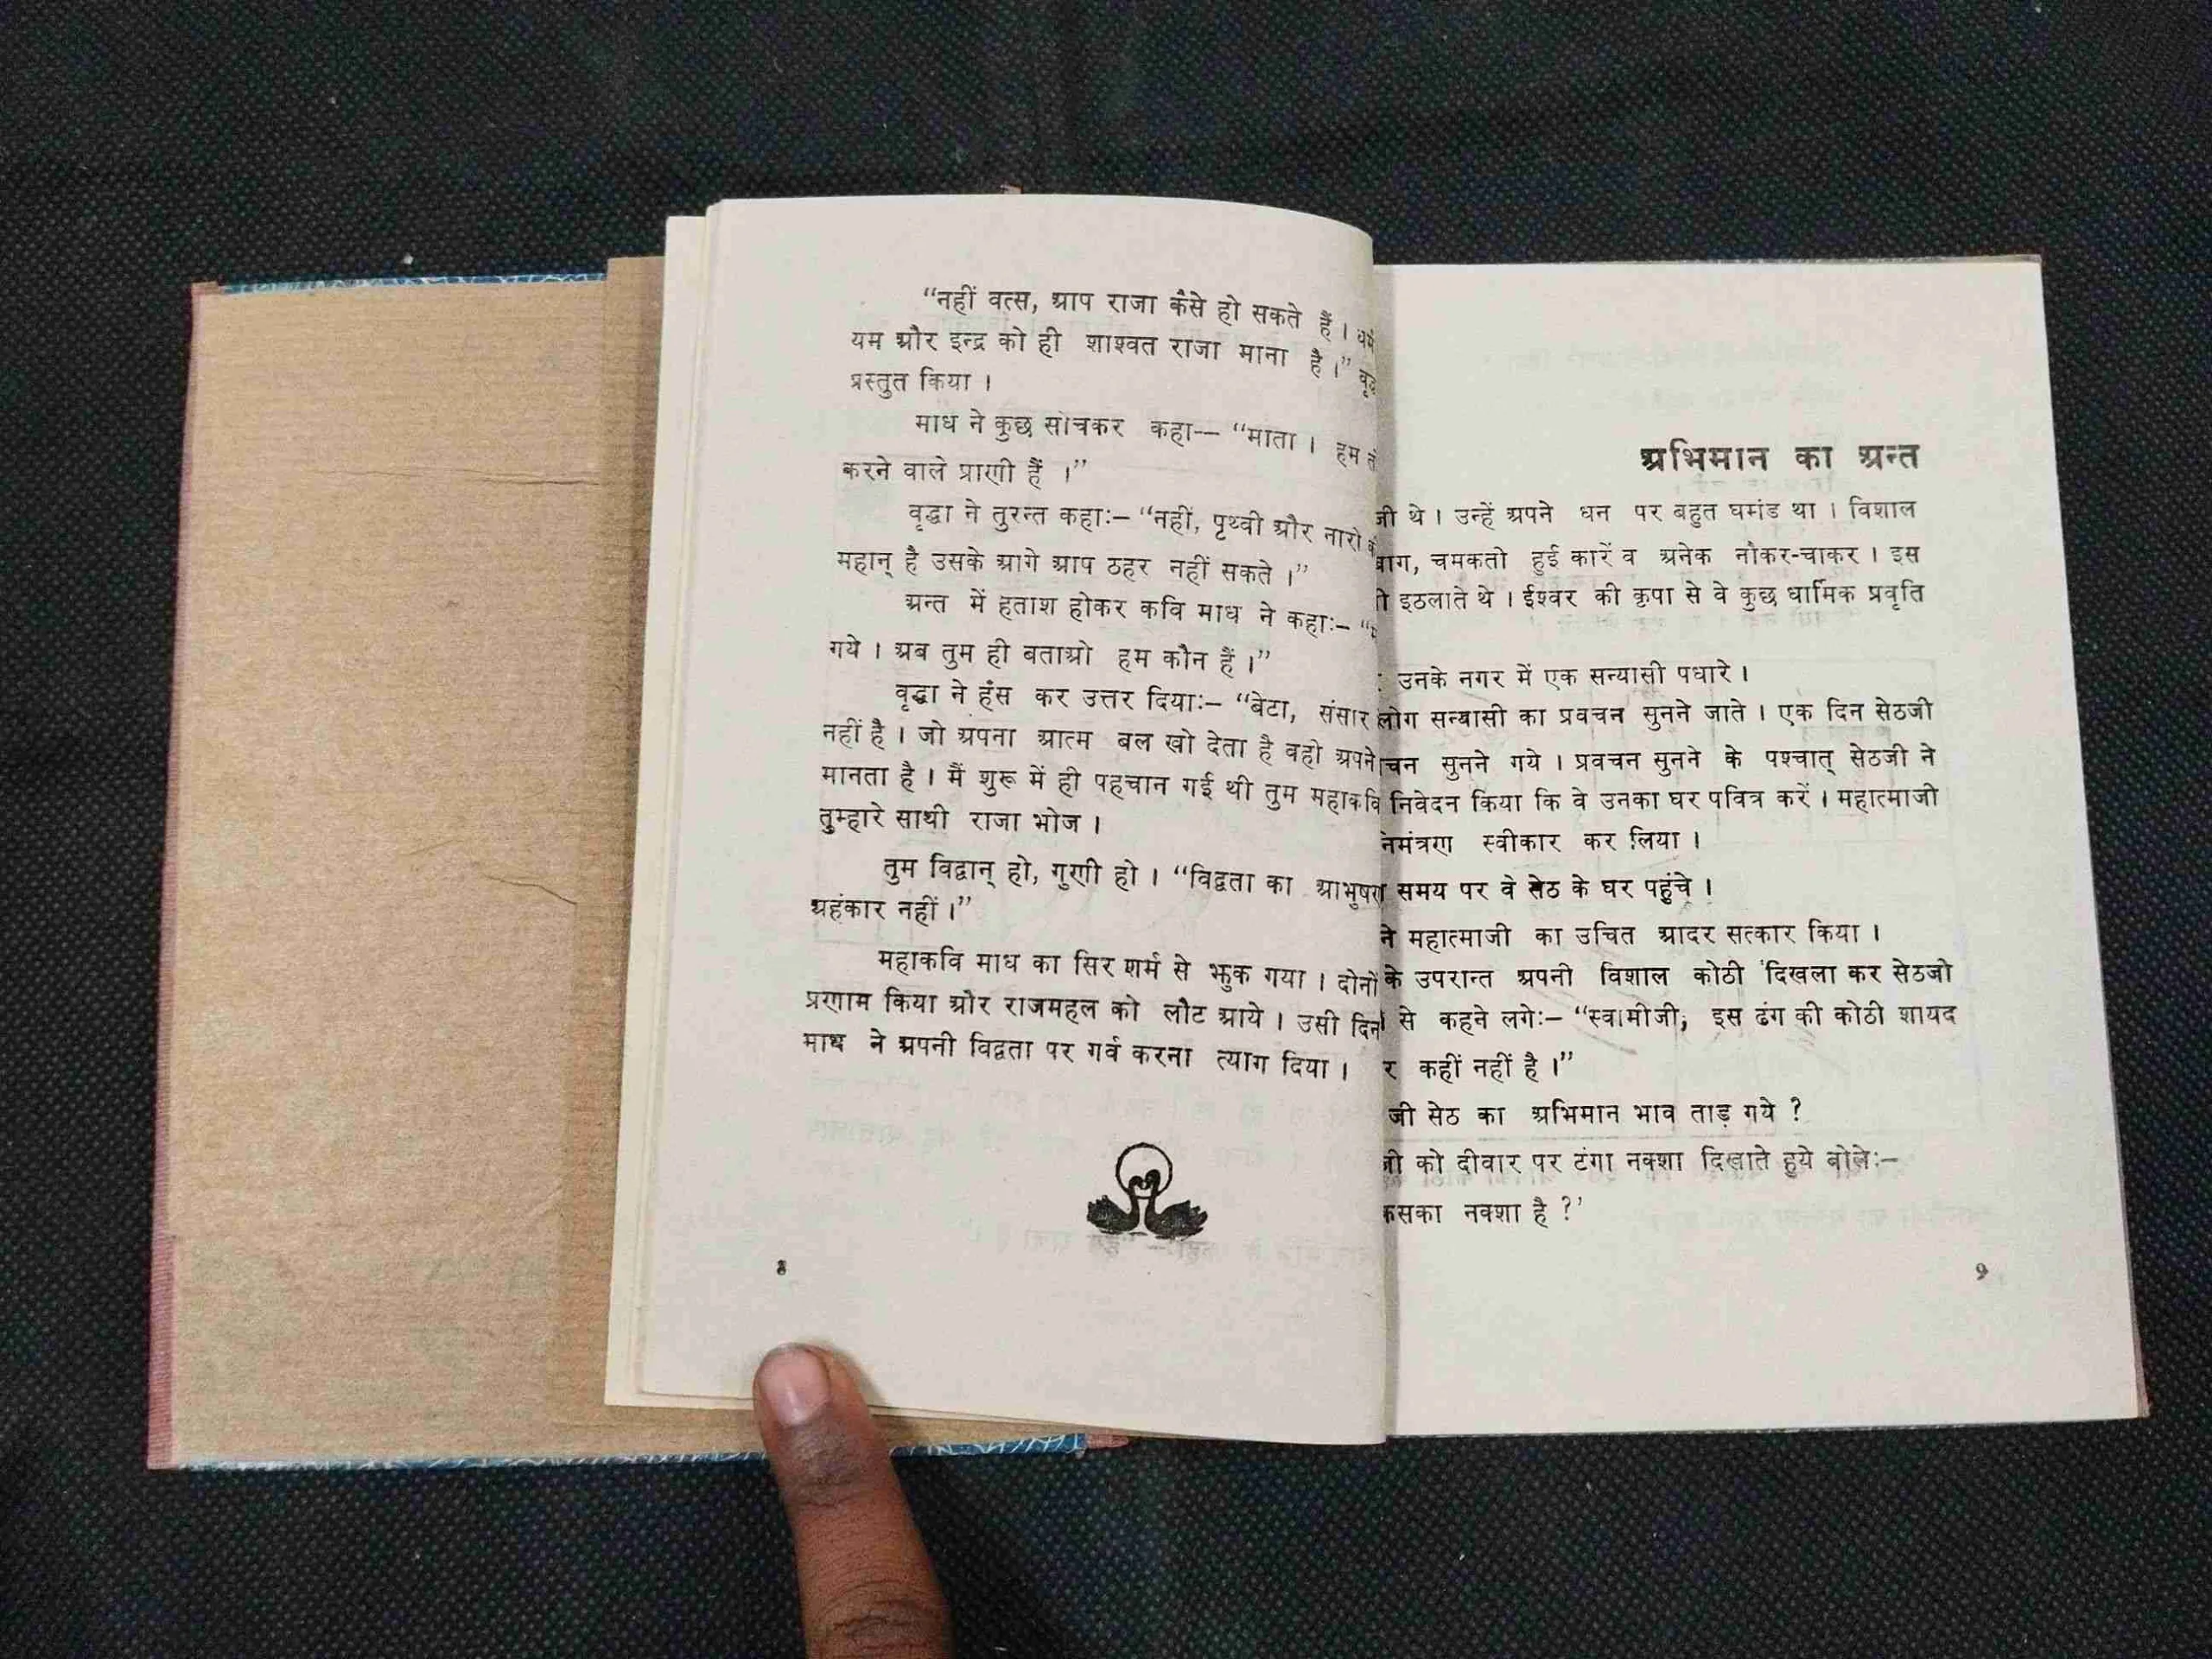 “नहीं वत्स, आप राजा कैसे हो सकते हैं ।
यम और इन्द्र को ही शाश्वत राजा माना है ।”
प्रस्तुत किया ।
माघ ने कुछ सोचकर कहा— “माता । हम
करने वाले प्राणी हैं ।”
वृद्धा ने तुरन्त कहा:– “नहीं, पृथ्वी और नारी
महान् है उसके आगे आप ठहर नहीं सकते ।”
अन्त में हताश होकर कवि माघ ने कहा:– “
गये । अब तुम ही बताओ हम कौन हैं ।”
वृद्धा ने हँस कर उत्तर दिया:– “बेटा, संसार
नहीं है । जो अपना आत्म बल खो देता है वही अपने
मानता है । मैं शुरू में ही पहचान गई थी तुम महाकवि
तुम्हारे साथी राजा भोज ।
तुम विद्वान् हो, गुणी हो । “विद्वता का आभुषण
अहंकार नहीं ।”
महाकवि माघ का सिर शर्म से झुक गया । दोनों
प्रणाम किया और राजमहल को लौट आये । उसी दिन
माघ ने अपनी विद्वता पर गर्व करना त्याग दिया ।
8
अभिमान का अन्त
जी थे । उन्हें अपने धन पर बहुत घमंड था । विशाल
बाग, चमकती हुई कारें व अनेक नौकर-चाकर । इस
इठलाते थे । ईश्वर की कृपा से वे कुछ धार्मिक प्रवृति
उनके नगर में एक सन्यासी पधारे ।
लोग सन्यासी का प्रवचन सुनने जाते । एक दिन सेठजी
चन सुनने गये । प्रवचन सुनने के पश्चात् सेठजी ने
निवेदन किया कि वे उनका घर पवित्र करें । महात्माजी
स्वीकार कर लिया ।
समय पर वे सेठ के घर पहुंचे ।
ने महात्माजी का उचित आदर सत्कार किया ।
के उपरान्त अपनी विशाल कोठी दिखला कर सेठजी
से कहने लगे:– “स्वामीजी, इस ढंग की कोठी शायद
र कहीं नहीं है ।”
जी सेठ का अभिमान भाव ताड़ गये ?
जी को दीवार पर टंगा नक्शा दिखाते हुये बोले:–
नक्शा है ?’
9